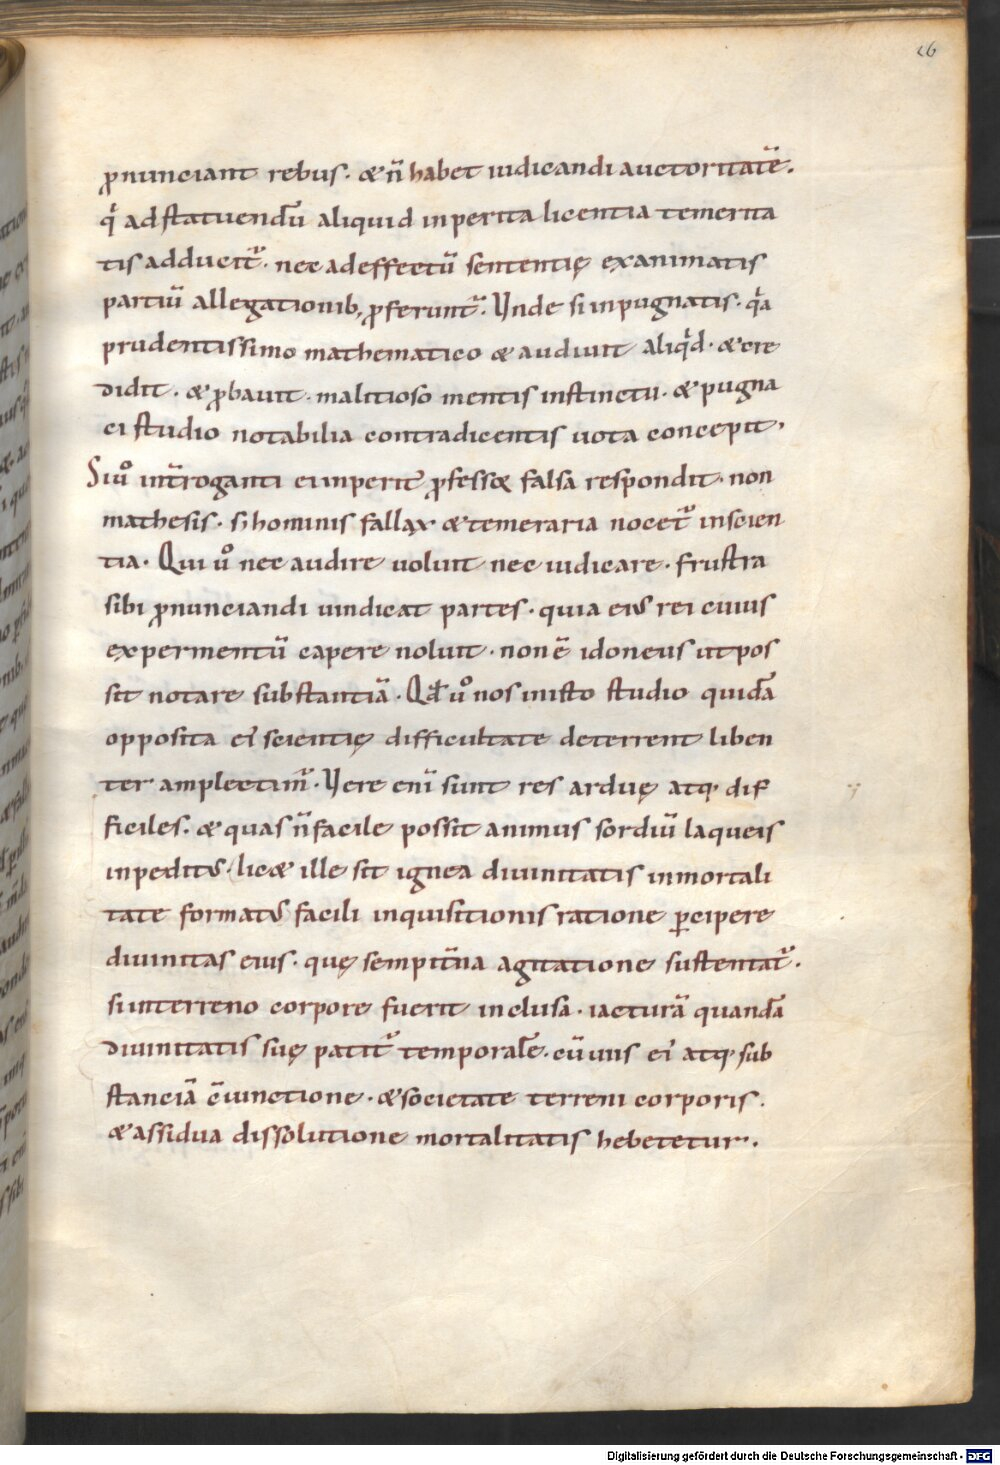 26
p̄nunciant rebus. & n̄ habet iudicandi auctoritatē.
q̊ ad statuendū aliquid inperita licentia temerita
tis adducit᷑. nec ad effectū sententię exanimatis
partiū allegationib; p̄ferunt᷑. Unde si inpugnatis. q̊a
prudentissimo mathematico & audiuit aliq̊d. & cre
didit. & p̄bauit. malitioso mentis instinctu. & pugna
ci studio notabilia contradicentis uota concepit.
Siů int̄roganti ei inperit᷑ p̄fessꝯ falsa respondit. non
mathesis. s; hominis fallax & temeraria nocet᷑ inscien
tia. Qui ů nec audire uoluit nec iudicare. frustra
sibi p̄nunciandi uindicat partes. quia eiꝰ rei cuius
expermentū capere noluit. non ē idoneus ut pos
sit notare substantiā. Qđ ů nos inisto studio quidā
opposita ei᷑ scientię difficultate deterrent liben
ter amplectim᷑. Vere eni᷑ sunt res arduę atq; dif
ficiles. & quas n̄ facile possit animus sordiū laqueis
inpeditꝰ. lic& ille sit ignea diuinitatis inmortali
tate formatꝰ facili inquisitionis ratione ꝑcipere
diuinitas eius. quę sempit̄na agitatione sustentat᷑.
si interreno corpore fuerit inclusa. iacturā quandā
diuinitatis suę patit᷑ temporalē. cū uis ei᷑ atq; sub
stanciā c̄iunctione. & societate terreni corporis.
& assidua dissolutione mortalitatis hebetetur.
Digitalisierung gefördert durch die Deutsche Forschungsgemeinschaft - DFG